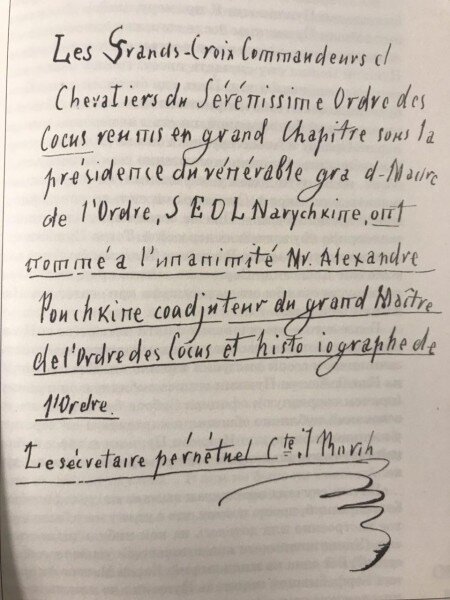 Les Grands-Croix Commandeurs et
Chevaliers du Sérénissime Ordre des
Cocus reunis en grand Chapitre sous la
présidence du vénérable gra d-Maître
de l'Ordre, S E D L Narychkine, ont
nommé a l'unanimité Mr. Alexandre
Pouchkine coadjuteur du grand Maître
de l'Ordre des Cocus et histo iographe de
l'Ordre.
Le sécretaire pérpétuel Cte. I